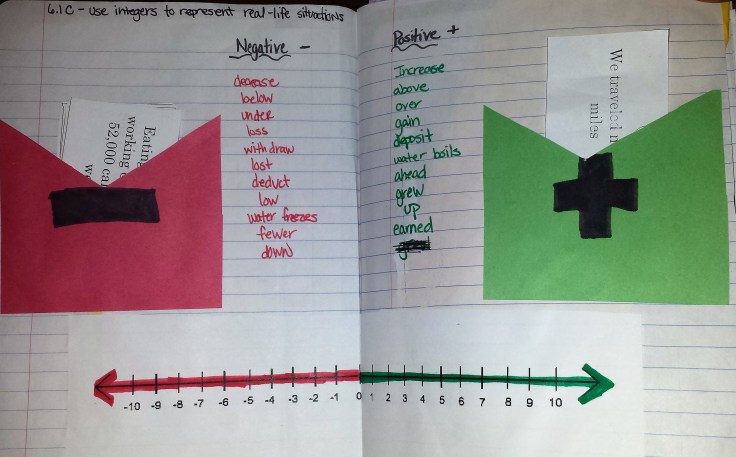 6.1C - use integers to represent real-life situations
Negative -
decrease
below
under
loss
withdraw
lost
deduct
low
water freezes
fewer
down
Positive +
Increase
above
over
gain
deposit
water boils
ahead
grew
up
earned
Eating
working
52,000 cal
We traveled
miles
-10 -9 -8 -7 -6 -5 -4 -3 -2 -1 0 1 2 3 4 5 6 7 8 9 10